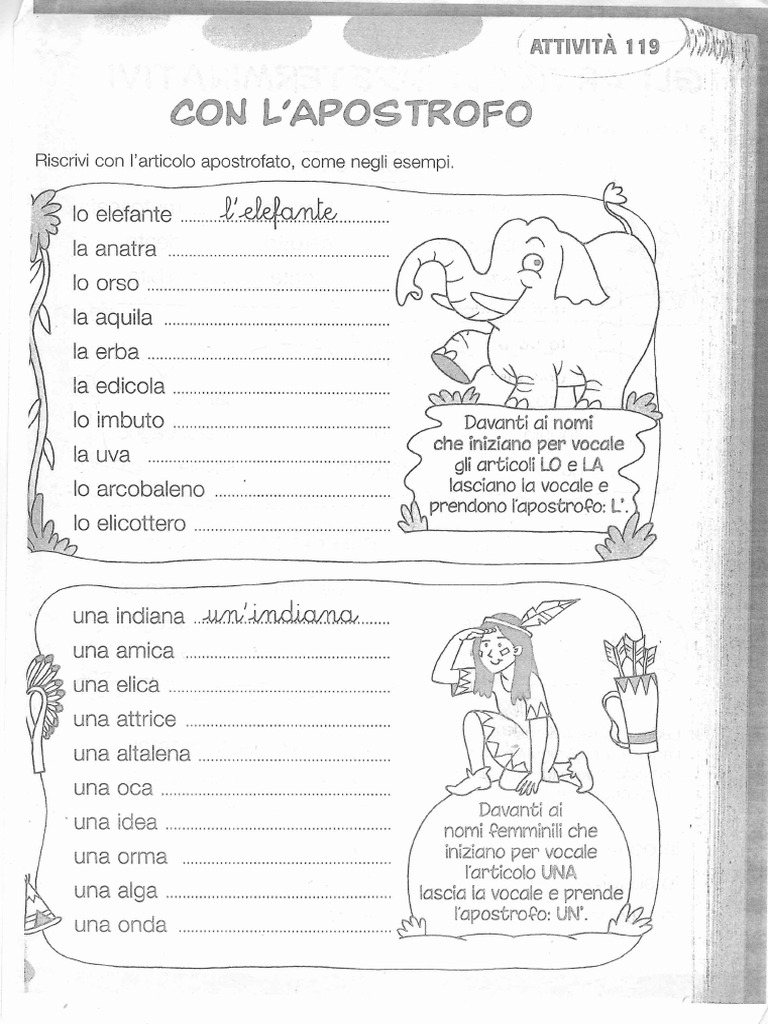 ATTIVITÀ 119
CON L'APOSTROFO
Riscrivi con l'articolo apostrofato, come negli esempi.
lo elefante l'elefante
la anatra
lo orso
la aquila
la erba
la edicola
lo imbuto
la uva
lo arcobaleno
lo elicottero
Davanti ai nomi
che iniziano per vocale
gli articoli LO e LA
lasciano la vocale e
prendono l'apostrofo: L'.
una indiana un'indiana
una amica
una elica
una attrice
una altalena
una oca
una idea
una orma
una alga
una onda
Davanti ai
nomi femminili che
iniziano per vocale
l'articolo UNA
lascia la vocale e prende
l'apostrofo: UN'.